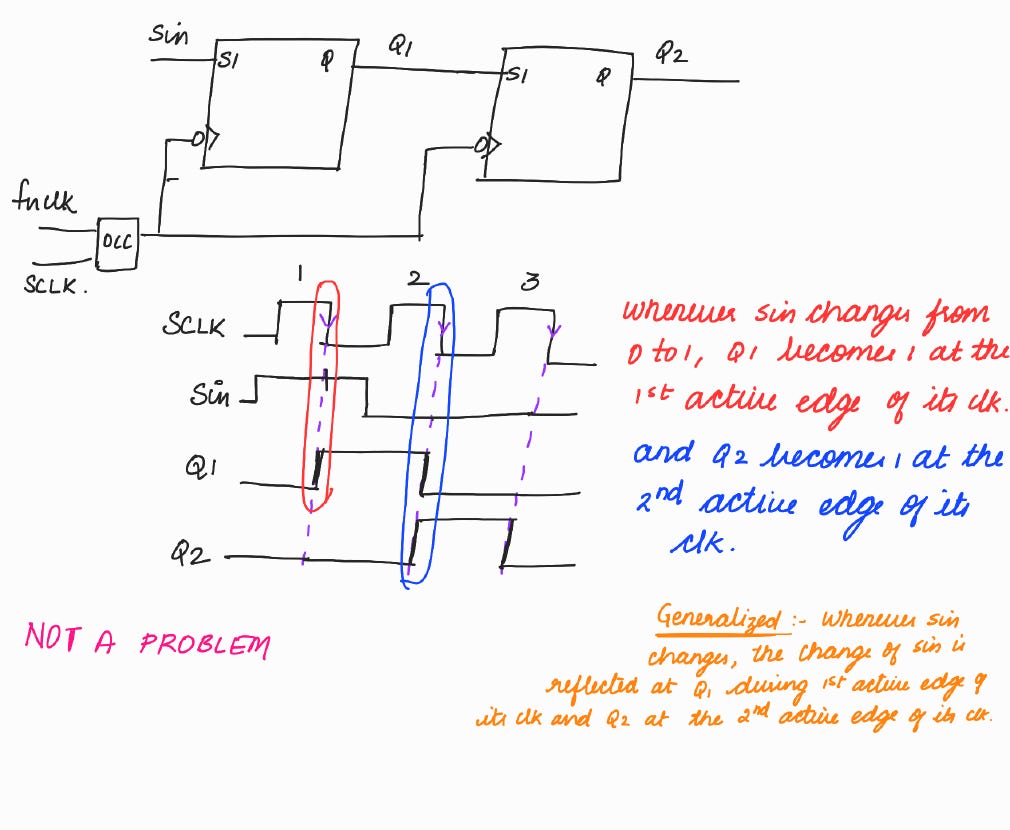 Sin
SI
Q
Q1
SI
Q
Q2
fnclk
OCC
SCLK.
1
2
3
SCLK
Sin
Q1
Q2
whenever sin changes from
0 to 1, Q1 becomes 1 at the
1st active edge of its clk.
and Q2 becomes 1 at the
2nd active edge of its
clk.
NOT A PROBLEM
Generalized :- whenever sin
changes, the change of sin is
reflected at Q1 during 1st active edge of
its clk and Q2 at the 2nd active edge of its clk.